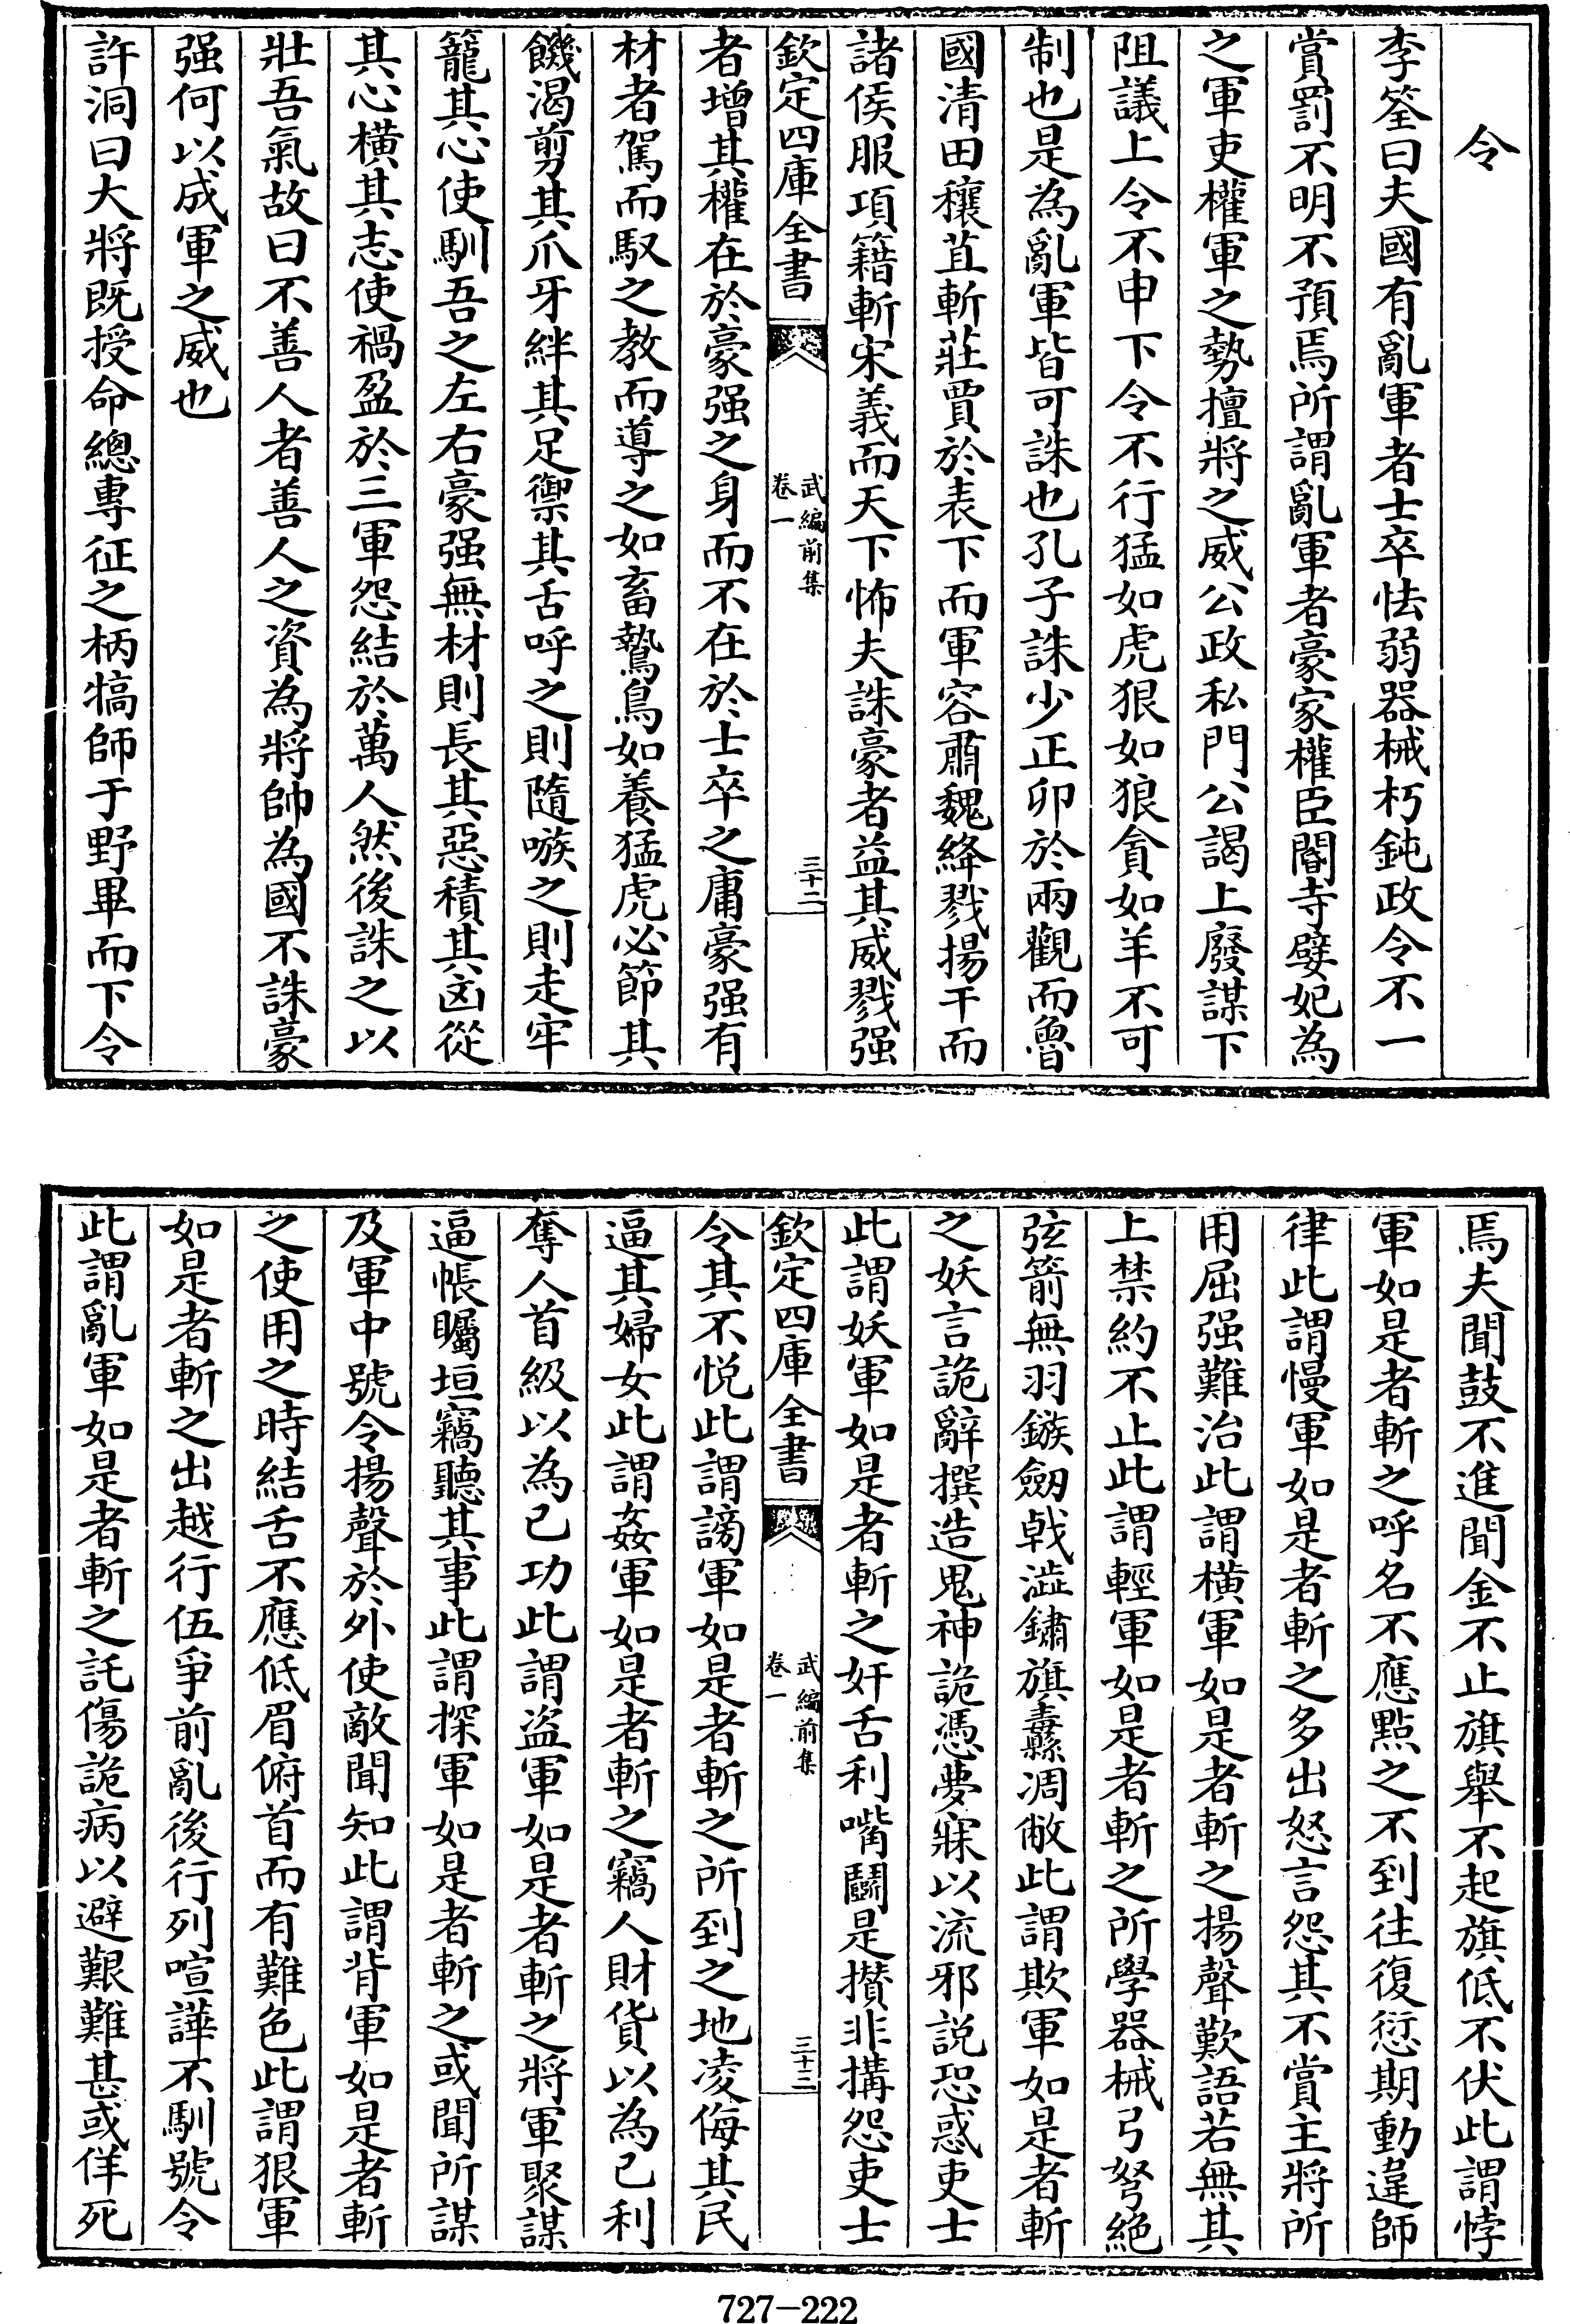 令
李筌曰夫國有亂軍者士卒怯弱器械朽鈍政令不一
賞罰不明不預焉所謂亂軍者豪家權臣閽寺嬖妃為
之軍吏權軍之勢擅將之威公政私門公謁上廢謀下
阻議上令不申下令不行猛如虎狠如狼貪如羊不可
制也是為亂軍皆可誅也孔子誅少正卯於兩觀而魯
國清田穰苴斬莊賈於表下而軍容肅魏絳戮揚干而
諸侯服項籍斬宋義而天下怖夫誅豪者益其威戮强
欽定四庫全書
武編前集
卷一
三十二
者增其權在於豪强之身而不在於士卒之庸豪强有
材者駕而馭之教而導之如畜鷙鳥如養猛虎必節其
饑渴剪其爪牙絆其足禦其舌呼之則隨嗾之則走牢
籠其心使馴吾之左右豪强無材則長其惡積其凶從
其心橫其志使禍盈於三軍怨結於萬人然後誅之以
壯吾氣故曰不善人者善人之資為將帥為國不誅豪
强何以成軍之威也
許洞曰大將既授命總專征之柄犒師于野畢而下令
焉夫聞鼓不進聞金不止旗舉不起旗低不伏此謂悖
軍如是者斬之呼名不應點之不到往復愆期動違師
律此謂慢軍如是者斬之多出怒言怨其不賞主將所
用屈强難治此謂橫軍如是者斬之揚聲歎語若無其
上禁約不止此謂輕軍如是者斬之所學器械弓弩絕
弦箭無羽鏃劒戟澁鏽旗纛凋敝此謂欺軍如是者斬
之妖言詭辭撰造鬼神詭憑夢寐以流邪説恐惑吏士
此謂妖軍如是者斬之奸舌利嘴鬭是攢非搆怨吏士
欽定四庫全書
武編前集
卷一
三十三
令其不悦此謂謗軍如是者斬之所到之地凌侮其民
逼其婦女此謂姦軍如是者斬之竊人財貨以為己利
奪人首級以為己功此謂盜軍如是者斬之將軍聚謀
逼帳矚垣竊聽其事此謂探軍如是者斬之或聞所謀
及軍中號令揚聲於外使敵聞知此謂背軍如是者斬
之使用之時結舌不應低眉俯首而有難色此謂狠軍
如是者斬之出越行伍爭前亂後行列喧譁不馴號令
此謂亂軍如是者斬之託傷詭病以避艱難甚或佯死
727-222